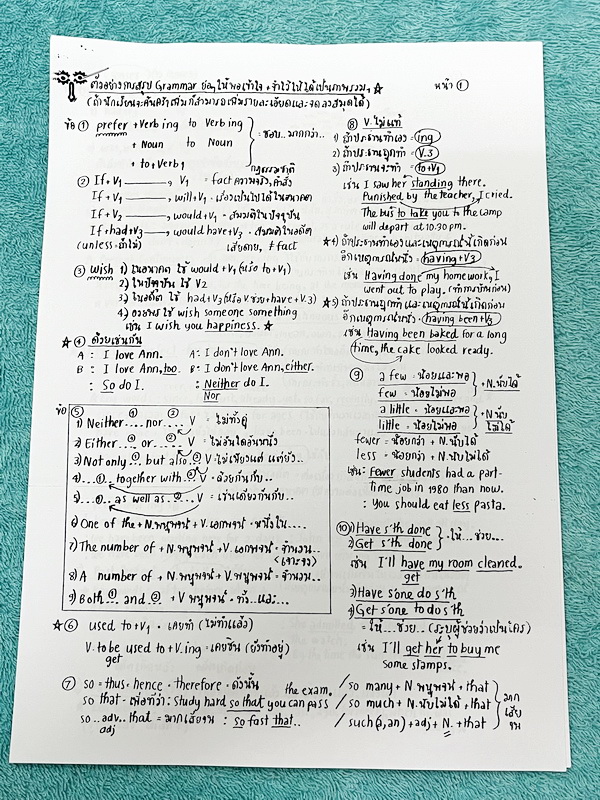 ตัวอย่างการสรุป Grammar ย่อๆ ให้พอเข้าใจ + จำไว้ใช้ได้เป็นภาพรวมๆ ☆ หน้า ①
(ถ้านักเรียนจะค้นคว้าเพิ่มก็สามารถเพิ่มรายละเอียดและจดลงสมุดได้)
ข้อ ① prefer + Verb ing to Verb ing
+ Noun to Noun
+ to + Verb 1
: ชอบ..มากกว่า..
② If + V1 → V1 = fact ความจริง, คำสั่ง
กฎธรรมชาติ
If + V1 → will + V1 = เรื่องเป็นไปได้ในอนาคต
If + V2 → would + V1 = สมมติในปัจจุบัน
If + had + V3 → would have + V3 = สมมติในอดีต
(unless = ถ้าไม่) เสียดาย, ≠ fact
③ Wish 1) ในอนาคต ใช้ would + V1 (หรือ to + V1)
2) ในปัจจุบัน ใช้ V2
3) ในอดีต ใช้ had + V3 (หรือ V.ช่วย + have + V.3)
4) อวยพร ใช้ wish someone something
เช่น I wish you happiness. ☆
☆ ④ ด้วยเช่นกัน
A : I love Ann. A : I don't love Ann.
B : I love Ann, too. B : I don't love Ann, either.
: So do I. : Neither do I.
Nor
ข้อ ⑤
1) Neither ①.... nor ②.... V = ไม่ทั้งคู่
2) Either ①... or ②... V = ไม่อันใดอันหนึ่ง
3) Not only ①... but also ② V = ไม่เพียงแต่ แต่ยัง..
4) ...①... together with ② V = ด้วยกันกับ..
5) ...①... as well as ②... V = เช่นเดียวกันกับ..
6) One of the + N.พหูพจน์ + V.เอกพจน์ = หนึ่งใน....
7) The number of + N.พหูพจน์ + V.เอกพจน์ = จำนวน..
(เจาะจง)
8) A number of + N.พหูพจน์ + V.พหูพจน์ = จำนวน..
9) Both ① and ② + V พหูพจน์ = ทั้ง...และ...
☆ ⑥ used to + V1 = เคยทำ (ไม่ทำแล้ว)
V. to be used to + V.ing = เคยชิน (ยังทำอยู่)
get
⑦ so = thus = hence = therefore = ดังนั้น
so that = เพื่อที่ว่า : study hard so that you can pass
the exam.
so..adv..that = มากเสียจน : so fast that..
adj
/ so many + N พหูพจน์ + that
/ so much + N.นับไม่ได้ + that
/ such (a, an) + adj + N. + that
มากเสียจน
⑧ V.ไม่แท้
1) ถ้าประธานทำเอง = ing
2) ถ้าประธานถูกทำ = V.3
3) ถ้าประธานจะทำ = to + V1
เช่น I saw her standing there.
Punished by the teacher, I cried.
The bus to take you to the camp
will depart at 10.30 pm.
☆4) ถ้าประธานทำเองและเหตุการณ์นี้เกิดก่อน
อีกเหตุการณ์หนึ่ง = having + V3
เช่น Having done my homework, I
went out to play. (ทำการบ้านก่อน)
☆5) ถ้าประธานถูกทำ และเหตุการณ์นี้เกิดก่อน
อีกเหตุการณ์หนึ่ง = having been + V3
เช่น Having been baked for a long
time, the cake looked ready.
⑨ a few = น้อยและพอ
few = น้อยไม่พอ
+ N.นับได้
a little = น้อยและพอ
little = น้อยไม่พอ
+ N.นับไม่ได้
fewer = น้อยกว่า + N.นับได้
less = น้อยกว่า + N.นับไม่ได้
เช่น : Fewer students had a part-
time job in 1980 than now.
: You should eat less pasta.
⑩ 1) Have s'th done
2) Get s'th done
: ให้...ช่วย...
เช่น I'll have my room cleaned.
get
3) Have s'one do s'th
4) Get s'one to do s'th
= ให้...ช่วย... (ระบุผู้ช่วยว่าเป็นใคร)
เช่น I'll get her to buy me
some stamps.